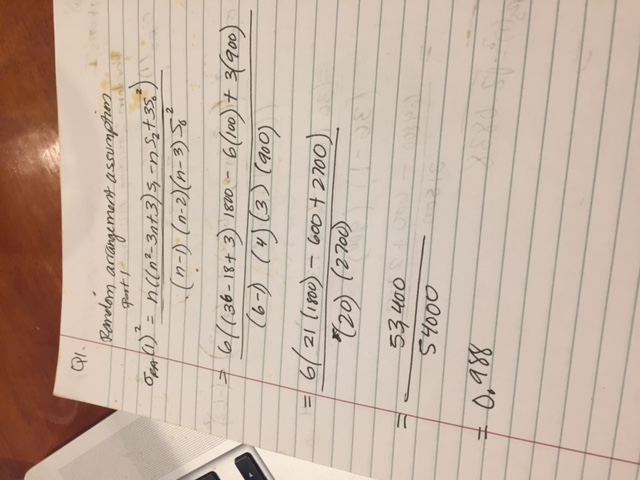 Q1.
Random arrangement assumption
part 1
σRA(1)² = n((n²-3n+3)S₁-nS₂+3S₀²)
(n-1) (n-2)(n-3)S₀²
= 6((36-18+3) 1800 - 6(100) + 3(900)
(6-1) (4)(3)(900)
= 6(21(1800) - 600 + 2700)
(20) (2700)
= 53,400
54000
= 0.988